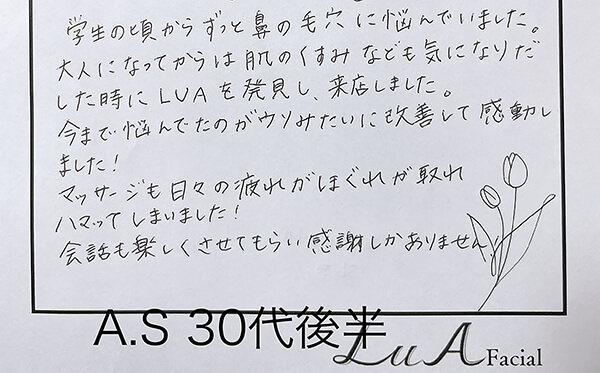 学生の頃からずっと鼻の毛穴に悩んでいました。
大人になってからは肌のくすみなども気になりだ
した時にLUAを発見し、来店しました。
今まで悩んでたのがウソみたいに改善して感動し
ました!
マッサージも日々の疲れがほぐれが取れ
ハマってしまいました!
会話も楽しくさせてもらい感謝しかありません!
A.S 30代後半
LuA Facial